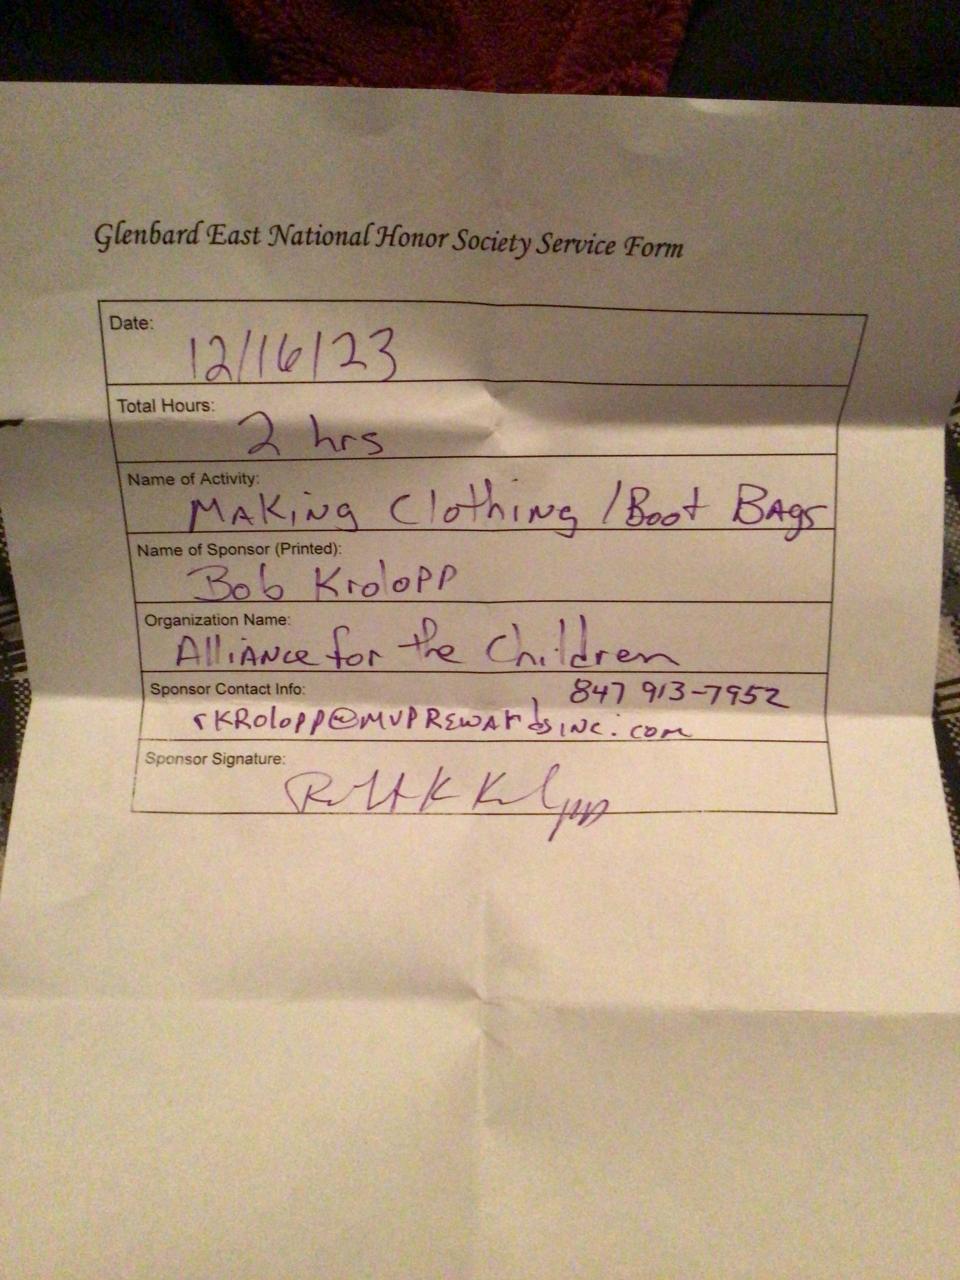 Glenbard East National Honor Society Service Form
Date:
12/16/23
Total Hours:
2 hrs
Name of Activity:
Making Clothing / Boot Bags
Name of Sponsor (Printed):
Bob Krolopp
Organization Name:
Alliance for the Children
Sponsor Contact Info:
847 913-7952
rkrolopp@mvprewardsinc.com
Sponsor Signature: